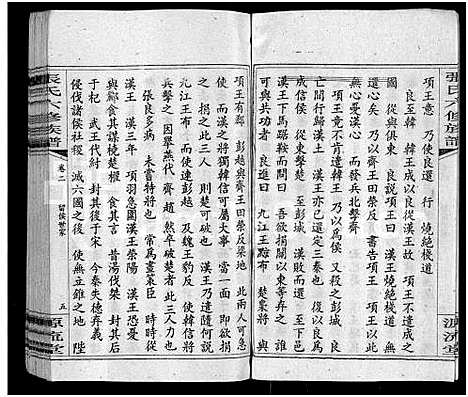 張氏六修族譜
項王意　乃使良還　行　燒絕棧道
良至韓　韓王成以良從漢王故　項王不遣成之
國　從與俱東　良說項王曰　漢王燒絕棧道　無
還心矣　乃以齊王田榮反書告項王　項王以此
無西憂漢心　而發兵北擊齊
項王竟不肯遣韓王　乃以為侯　又殺之彭城　良
亡間行歸漢王　漢王亦已還定三秦矣　復以良為
成信侯　從東擊楚　至彭城　漢敗而還　至下邑
漢王下馬踞鞍而問曰　吾欲捐關以東等棄之　誰
可與共功者　良進曰　九江王黥布　楚梟將　與
源流堂
項王有郤　彭越與齊王田榮反梁地　此兩人可急
使　而漢王之將獨韓信可屬大事　當一面　即欲捐
之　捐之此三人　則楚可破也　漢王乃遣隨何說
九江王布　而使人連彭越　及魏王豹反　使韓信將
兵擊之　因舉燕代　齊　趙　然卒破楚者　此三人力也
張良多病　未嘗特將也　常為畫策臣　時時從
漢王　漢三年　項羽急圍漢王滎陽　漢王恐憂
與酈食其謀橈楚權　食其曰　昔湯伐桀　封其後
于杞　武王伐紂　封其後于宋　今秦失德棄義
侵伐諸侯社稷　滅六國之後　使無立錐之地　陛
張氏六修族譜
卷二　留侯世家　五
源流堂